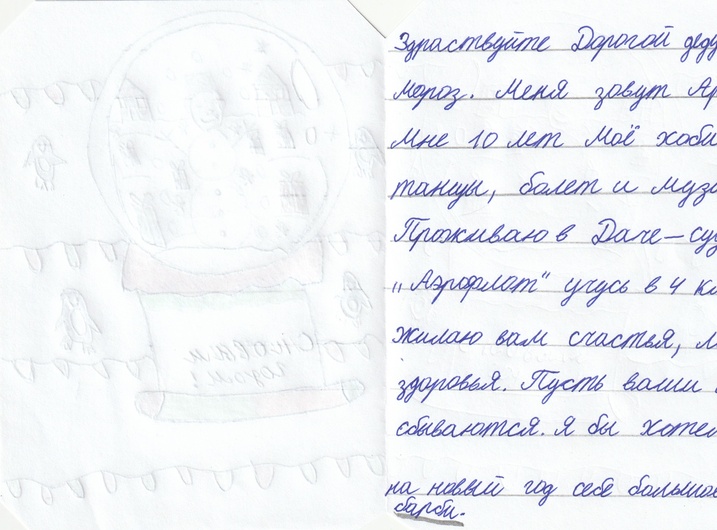 Здраствуйте Дорогой деду
Мороз. Меня зовут Ар
Мне 10 лет Моё хоби
танцы, болет и музы
Проживаю в Даче-су
„Аэрофлот" учусь в 4 кл
жилаю вам счастья,
здоровья. Пусть ваши
сбываются. Я бы хотел
на новый год себе большов
барби.
С новам
годом!